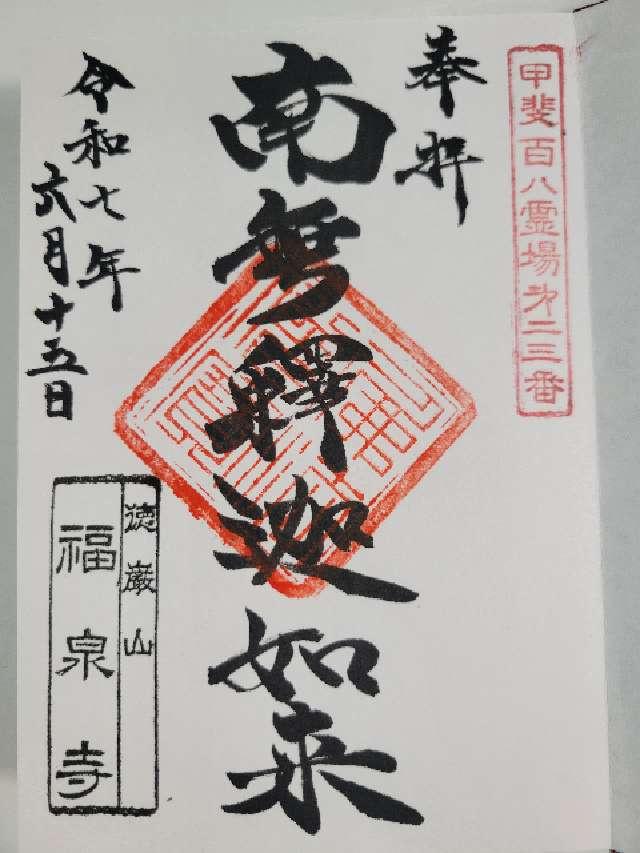 甲斐百八霊場第二三番
奉拝
南無釋迦如来
令和七年
六月十五日
徳巌山
福泉寺